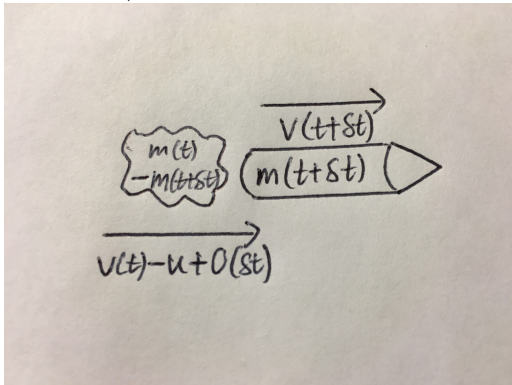 V(t+δt)
m(t)
-m(t+δt)
m(t+δt)
V(t)-u+O(δt)